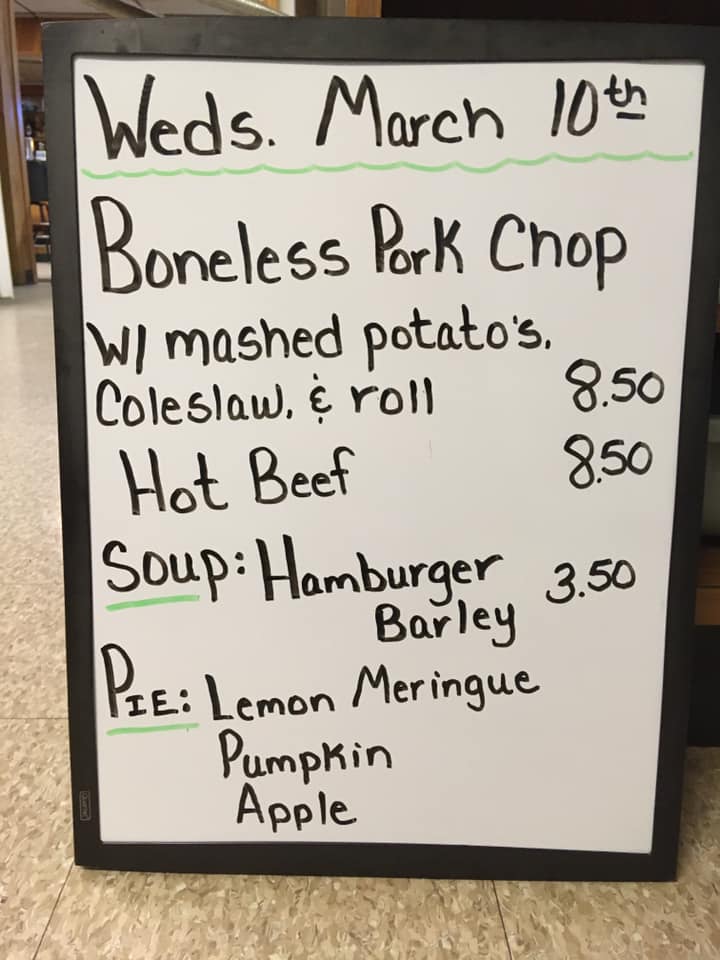 Weds. March 10th
Boneless Pork Chop
W/ mashed potato's,
Coleslaw, & roll 8.50
Hot Beef 8.50
Soup: Hamburger 3.50
Barley
PIE: Lemon Meringue
Pumpkin
Apple